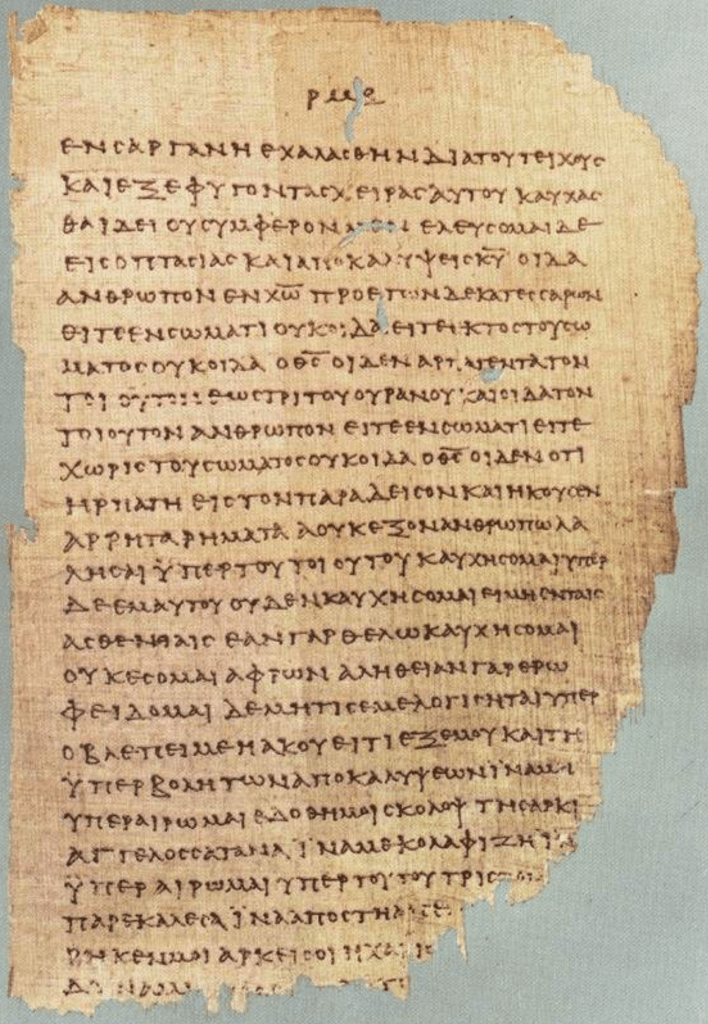 ΕΝϹΑΡΓΑΝΗ ΕΧΑΛΑϹΘΗΝ ΔΙΑΤΟΥΤΕΙΧΟΥϹ
ΚΑΙΕΞΕΦΥΓΟΝΤΑϹΧΕΙΡΑϹΑΥΤΟΥ ΚΑΥΧΑϹ
ΘΑΙΔΕΙ ΟΥϹΥΜΦΕΡΟΝ ΕΛΕΥϹΟΜΑΙΔΕ
ΕΙϹΟΠΤΑϹΙΑϹ ΚΑΙΑΠΟΚΑΛΥΨΕΙϹΚ̅Υ̅ ΟΙΔΑ
ΑΝΘΡΩΠΟΝ ΕΝΧ̅Ω̅ ΠΡΟΕΤΩΝΔΕΚΑΤΕϹϹΑΡΩΝ
ΕΙΤΕΕΝϹΩΜΑΤΙΟΥΚΟΙΔΑ ΕΙΤΕΕΚΤΟϹΤΟΥϹΩ
ΜΑΤΟϹΟΥΚΟΙΔΑ ΟΘ̅Ϲ̅ ΟΙΔΕΝ ΑΡΠΑΓΕΝΤΑΤΟΝ
ΤΟΙΟΥΤΟΝ ΕΩϹΤΡΙΤΟΥΟΥΡΑΝΟΥ ΚΑΙΟΙΔΑΤΟΝ
ΤΟΙΟΥΤΟΝ ΑΝΘΡΩΠΟΝ ΕΙΤΕΕΝϹΩΜΑΤΙΕΙΤΕ
ΧΩΡΙϹΤΟΥϹΩΜΑΤΟϹΟΥΚΟΙΔΑ ΟΘ̅Ϲ̅ ΟΙΔΕΝ ΟΤΙ
ΗΡΠΑΓΗ ΕΙϹΤΟΝΠΑΡΑΔΕΙϹΟΝΚΑΙΗΚΟΥϹΕΝ
ΑΡΡΗΤΑΡΗΜΑΤΑ ΑΟΥΚΕΞΟΝΑΝΘΡΩΠΩΛΑ
ΛΗϹΑΙ ΫΠΕΡΤΟΥΤΟΙΟΥΤΟΥ ΚΑΥΧΗϹΟΜΑΙΥΠΕΡ
ΔΕΕΜΑΥΤΟΥ ΟΥΔΕΝΚΑΥΧΗϹΟΜΑΙΕΙΜΗΕΝΤΑΙϹ
ΑϹΘΕΝΕΙΑΙϹ ΕΑΝΓΑΡΘΕΛΩΚΑΥΧΗϹΟΜΑΙ
ΟΥΚΕϹΟΜΑΙ ΑΦΡΩΝ ΑΛΗΘΕΙΑΝΓΑΡΕΡΩ
ΦΕΙΔΟΜΑΙ ΔΕΜΗΤΙϹΕΜΕΛΟΓΙϹΗΤΑΙΥΠΕΡ
ΟΒΛΕΠΕΙΜΕΗΑΚΟΥΕΙΤΙΕΞΕΜΟΥΚΑΙΤΗ
ΫΠΕΡΒΟΛΗΤΩΝΑΠΟΚΑΛΥΨΕΩΝΪΝΑΜΗ
ΥΠΕΡΑΙΡΩΜΑΙ ΕΔΟΘΗΜΟΙϹΚΟΛΟΨ ΤΗϹΑΡΚΙ
ΑΓΓΕΛΟϹϹΑΤΑΝΑ ΪΝΑΜΕΚΟΛΑΦΙΖΗΪΝΑ
ΫΠΕΡΑΙΡΩΜΑΙ ΥΠΕΡΤΟΥΤΟΥΤΡΙϹ
ΠΑΡΕΚΑΛΕϹΑ ΪΝΑΑΠΟϹΤΗ
ΡΗΚΕΝΜΟΙ ΑΡΚΕΙϹΟΙ ΗΧΑΡΙϹ